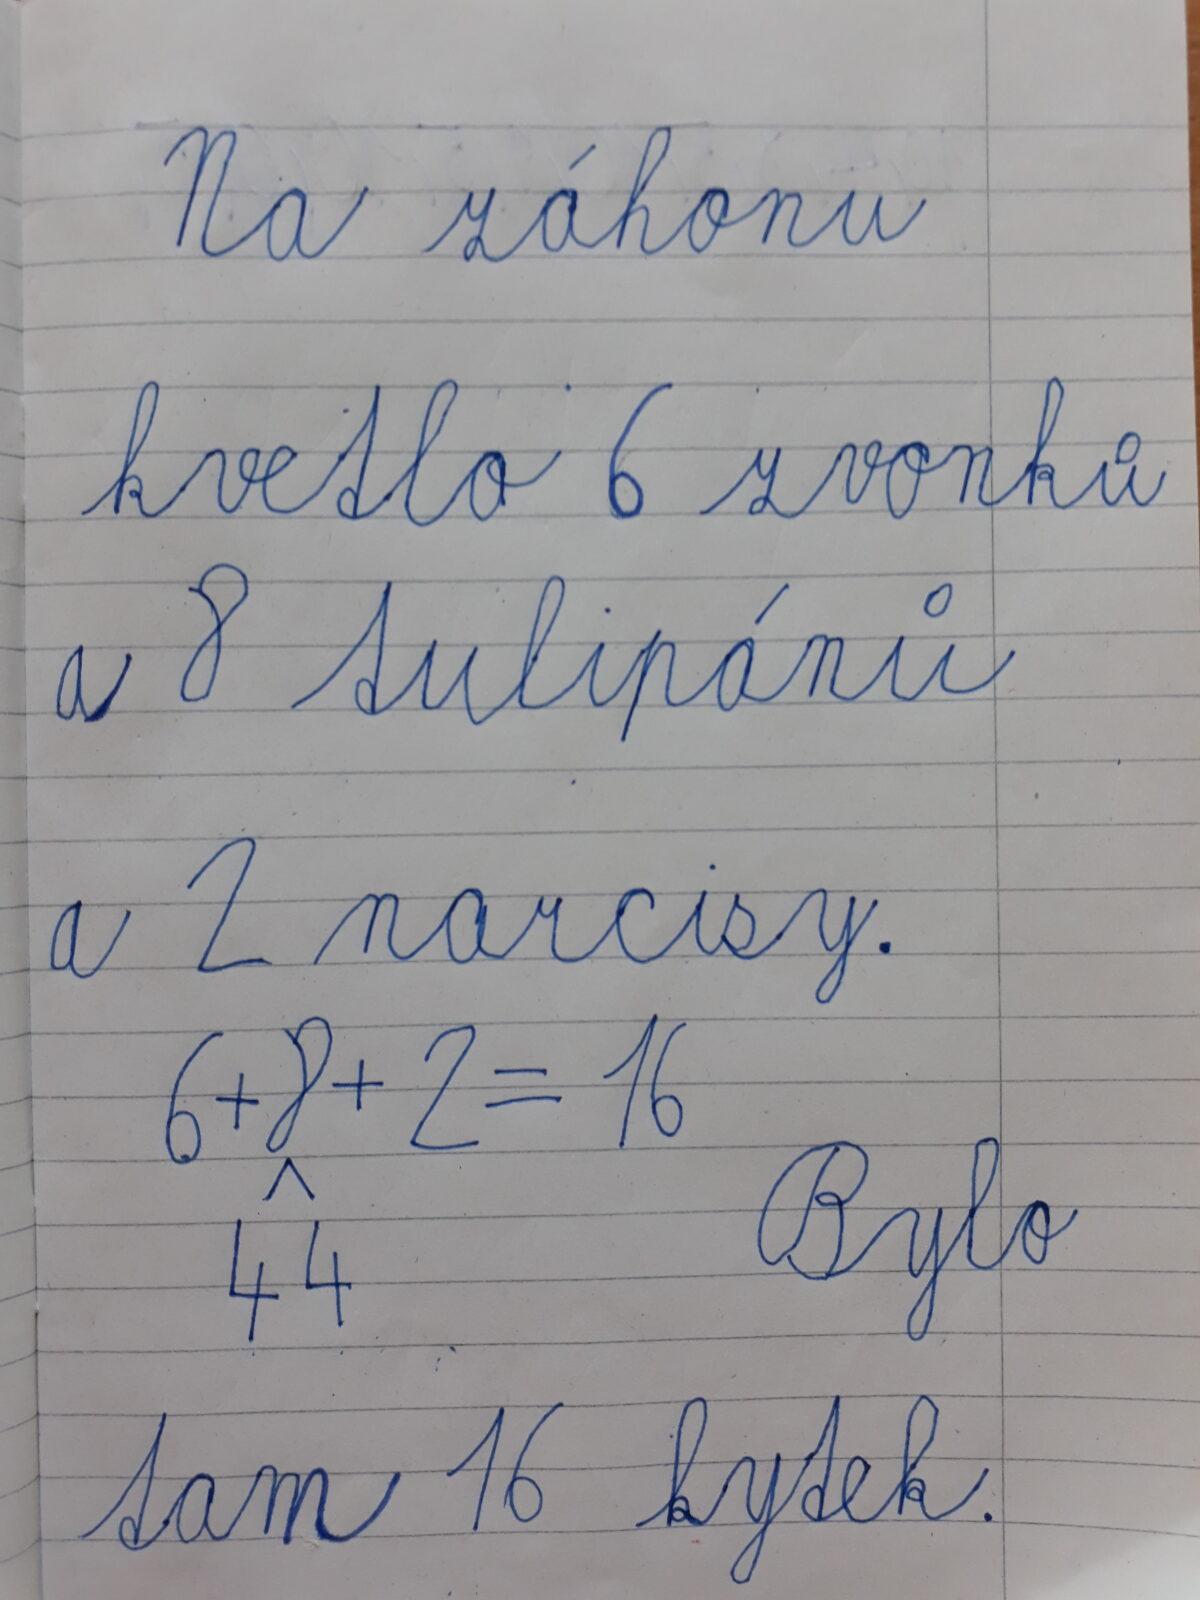 Na záhonu
kvetlo 6 zvonků
a 8 tulipánů
a 2 narcisy.
6+8+2=16
^
4 4
Bylo
tam 16 kytek.